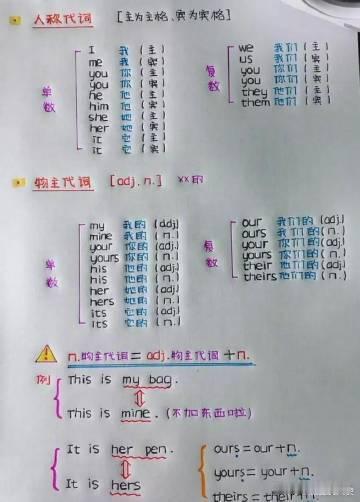 人称代词 [主为主格、宾为宾格]
单数
I 我 (主)
me 我 (宾)
you 你 (主)
you 你 (宾)
he 他 (主)
him 他 (宾)
she 她 (主)
her 她 (宾)
it 它 (主)
it 它 (宾)
复数
we 我们 (主)
us 我们 (宾)
you 你们 (主)
you 你们 (宾)
they 他们 (主)
them 他们 (宾)
物主代词 [adj. n.] xx的
单数
my 我的 (adj)
mine 我的 (n.)
your 你的 (adj)
yours 你的 (n.)
his 他的 (adj)
his 他的 (n.)
her 她的 (adj)
hers 她的 (n.)
its 它的 (adj)
its 它的 (n.)
复数
our 我们的 (adj)
ours 我们的 (n.)
your 你们的 (adj)
yours 你们的 (n.)
their 他们的 (adj)
theirs 他们的 (n.)
n.物主代词 = adj.物主代词 + n.
例
This is my bag.
This is mine. (不加东西啦)
It is her pen.
It is hers
ours = our + n.
yours = your + n.
theirs = their + n.